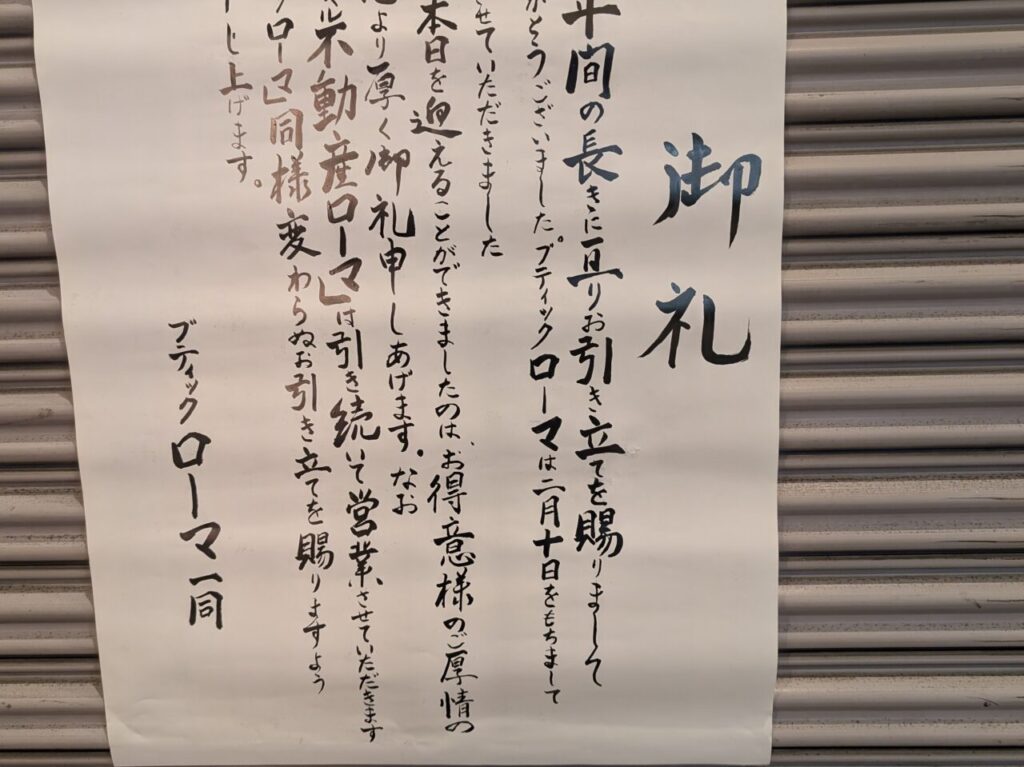 御礼
年間の長きに亘りお引き立てを賜りまして
がとうございました。ブティックローマは二月十日をもちまして
せていただきました
本日を迎えることができましたのは、お得意様のご厚情の
より厚く御礼申しあげます。なお
ル不動産ローマ」は引き続いて営業させていただきます
ローマ」同様変わらぬお引き立てを賜りますよう
し上げます。
ブティックローマ一同